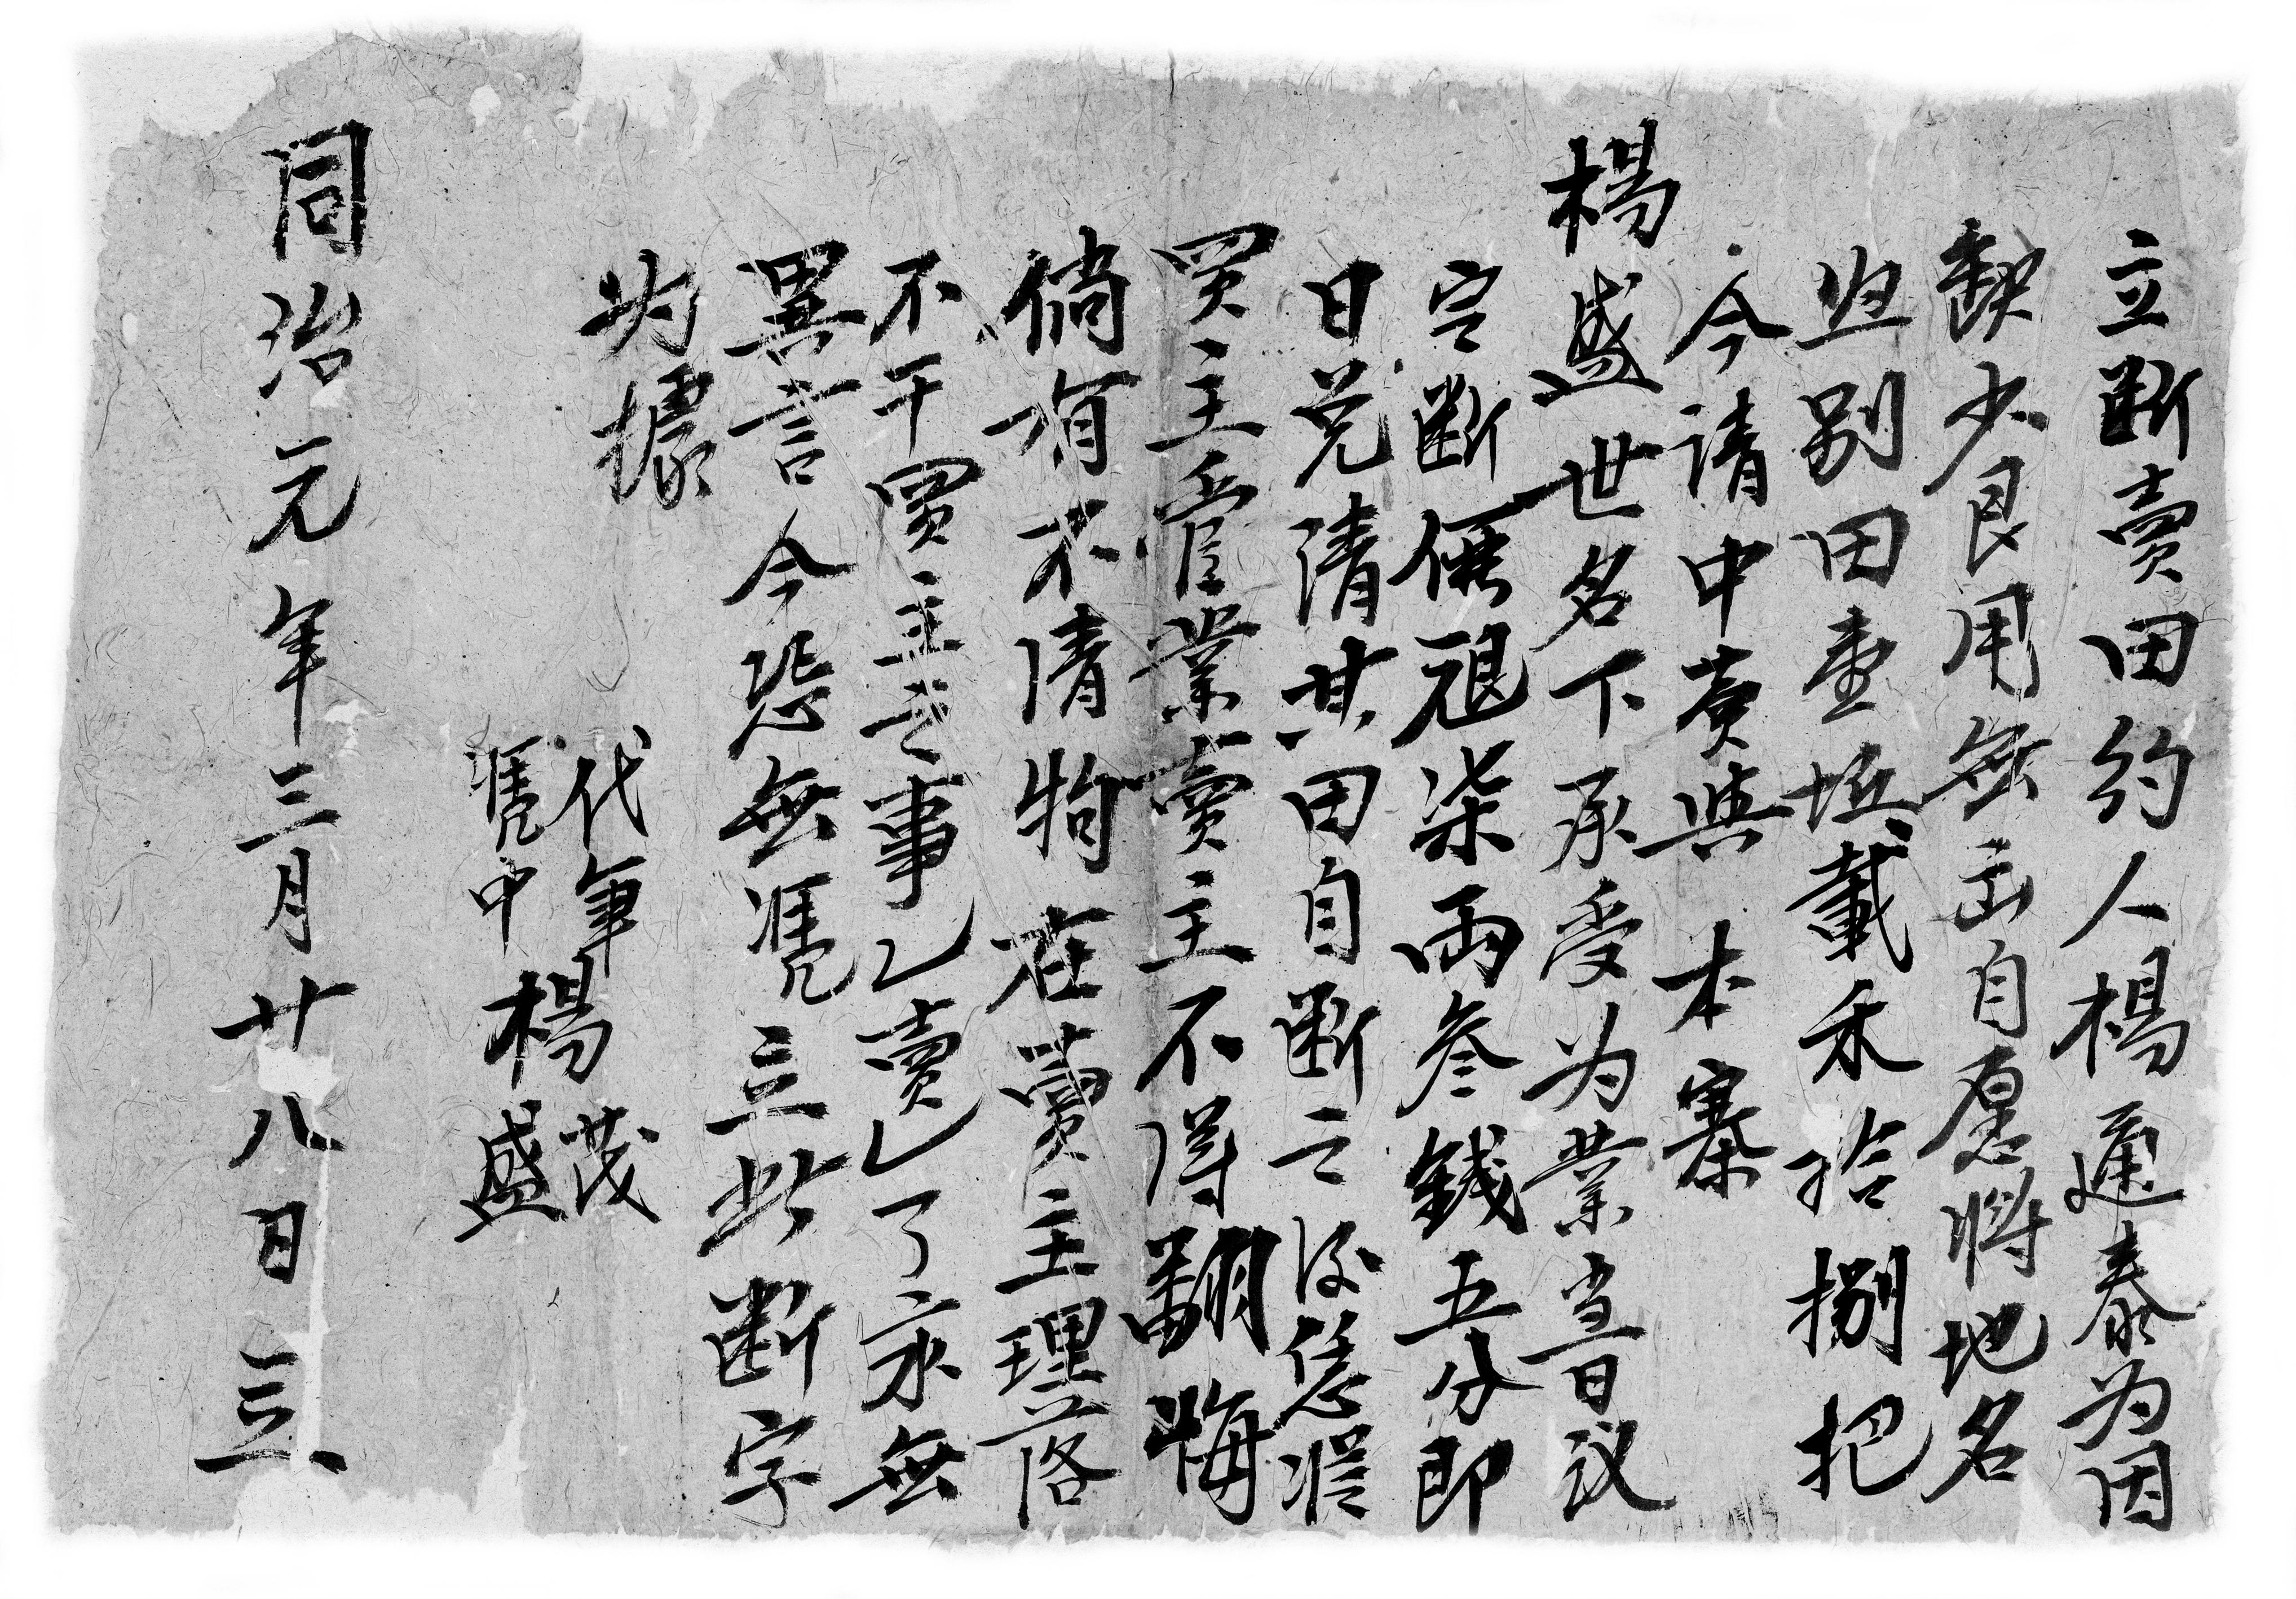 立断賣田約人楊通泰为因
缺少艮用無出自愿將地名
别田壹坵載禾拾捌把
今请中賣與 本寨
楊盛世名下承受为業当日议
定断價艮柒両叁錢五分即
日兑清其田自断之後恁從
買主耕管業賣主不得翻悔
倘有不清物在賣主理落
不干買主之事乚乚賣乚了永無
異言今恐無凴立此断字
为據
代筆 茂
凴中楊盛
同治元年三月廿八日立